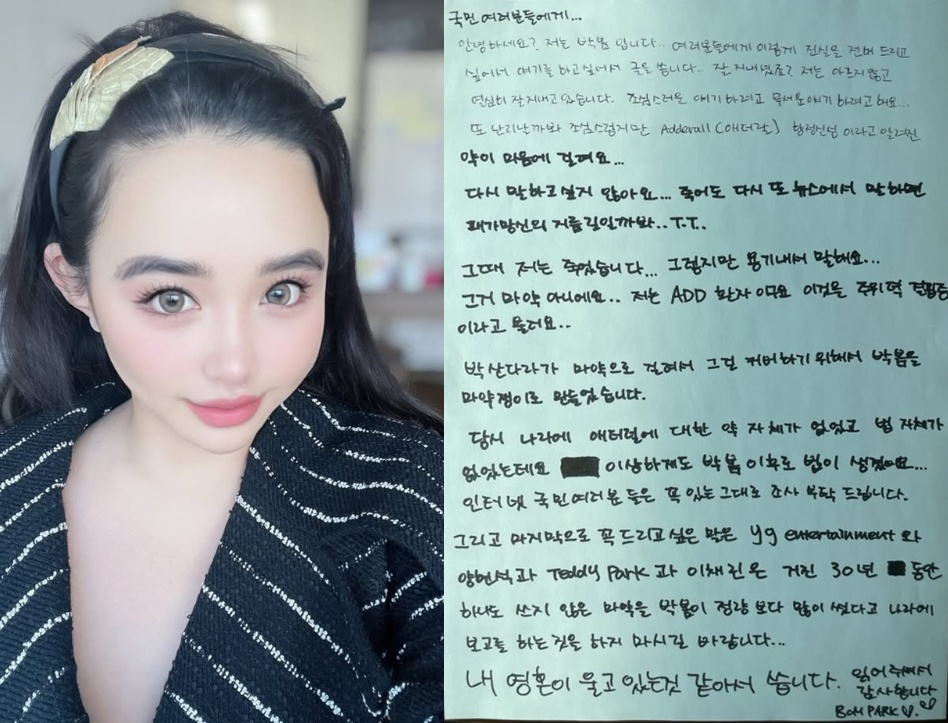 국민 여러분들에게...
안녕하세요? 저는 박봄 입니다.. 여러분들에게 이렇게 진실을 전해 드리고
싶어서 얘기를 하고 싶어서 글을 씁니다.. 잘 지내셨죠? 저는 아프지 않고
열심히 잘지내고 있습니다. 조심스러운 얘기 하려고 무서운 얘기 하려고 해요...
또 난리날까봐 조심스럽지만 Adderall (애더럴) 향정신성 이라고 알려진
약이 마음에 걸려요...
다시 말하고 싶지 않아요... 죽어도 다시 또 뉴스에서 말하면
패가망신의 지름길일까봐.. T.T.
그때 저는 죽었습니다... 그렇지만 용기내서 말해요...
그거 마약 아니에요.. 저는 ADD 환자 이고요 이것을 주위력 결핍증
이라고 불러요..
박산다라가 마약으로 걸려서 그걸 커버하기 위해서 박봄을
마약쟁이로 만들었습니다.
당시 나라에 애터럴에 대한 약 자체가 없었고 법 자체가
없었는데요 이상하게도 박봄 이후로 법이 생겼어요...
인터넷 국민 여러분 들은 꼭 있는 그대로 조사 부탁 드립니다.
그리고 마지막으로 꼭 드리고 싶은 말은 yg entertainment 와
양현석과 Teddy Park 과 이채린은 거진 30년 동안
하나도 쓰지 않은 마약을 박봄이 정량 보다 많이 썼다고 나라에
보고를 하는 것을 하지 마시길 바랍니다...
내 영혼이 울고 있는것 같아서 씁니다. 읽어 주셔서
감사합니다
BOM PARK ♡. ♡